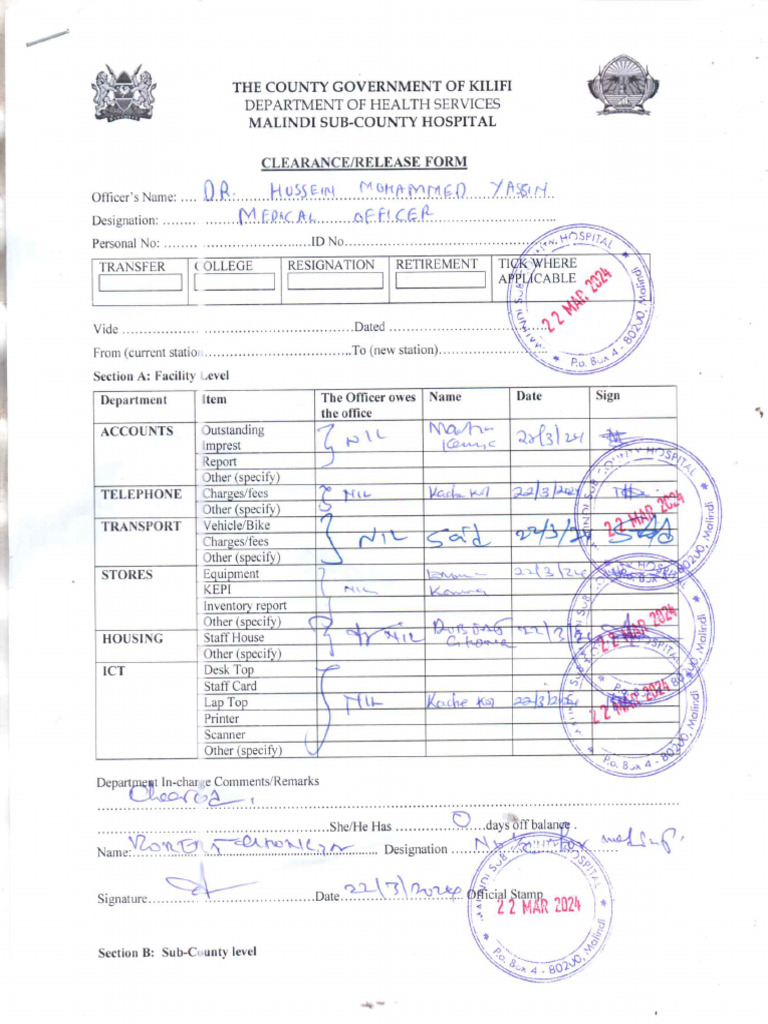 THE COUNTY GOVERNMENT OF KILIFI
DEPARTMENT OF HEALTH SERVICES
MALINDI SUB-COUNTY HOSPITAL
CLEARANCE/RELEASE FORM
Officer's Name: DR. HUSSEIN MOHAMMED YASSIN
Designation: MEDICAL OFFICER
Personal No: ID No.
TRANSFER COLLEGE RESIGNATION RETIREMENT TICK WHERE APPLICABLE
MALINDI SUB COUNTY HOSPITAL
22 MAR 2024
P.o. Box 4 - 80200, Malindi
Vide Dated
From (current station To (new station)
Section A: Facility Level
Department Item The Officer owes the office Name Date Sign
ACCOUNTS Outstanding Imprest NIL 22/3/24
Report
Other (specify)
TELEPHONE Charges/fees NIL 22/3/2024
Other (specify)
TRANSPORT Vehicle/Bike
Charges/fees NIL Said 22/3/24
Other (specify)
STORES Equipment 22/3/24
KEPI NIL
Inventory report
Other (specify)
HOUSING Staff House NIL 22/3/24
Other (specify)
ICT Desk Top
Staff Card
Lap Top NIL Kache 22/3/2024
Printer
Scanner
Other (specify)
COUNTY HOSPITAL
22 MAR 2024
P.o. Box 4 - 80200, Malindi
22 MAR 2024
22 MAR 2024
P.o. Box 4 - 80200, Malindi
Department In-charge Comments/Remarks
She/He Has 0 days off balance .
Name: Designation
Signature Date 22/3/2024 Official Stamp
22 MAR 2024
P.o. Box 4 - 80200, Malindi
Section B: Sub-County level